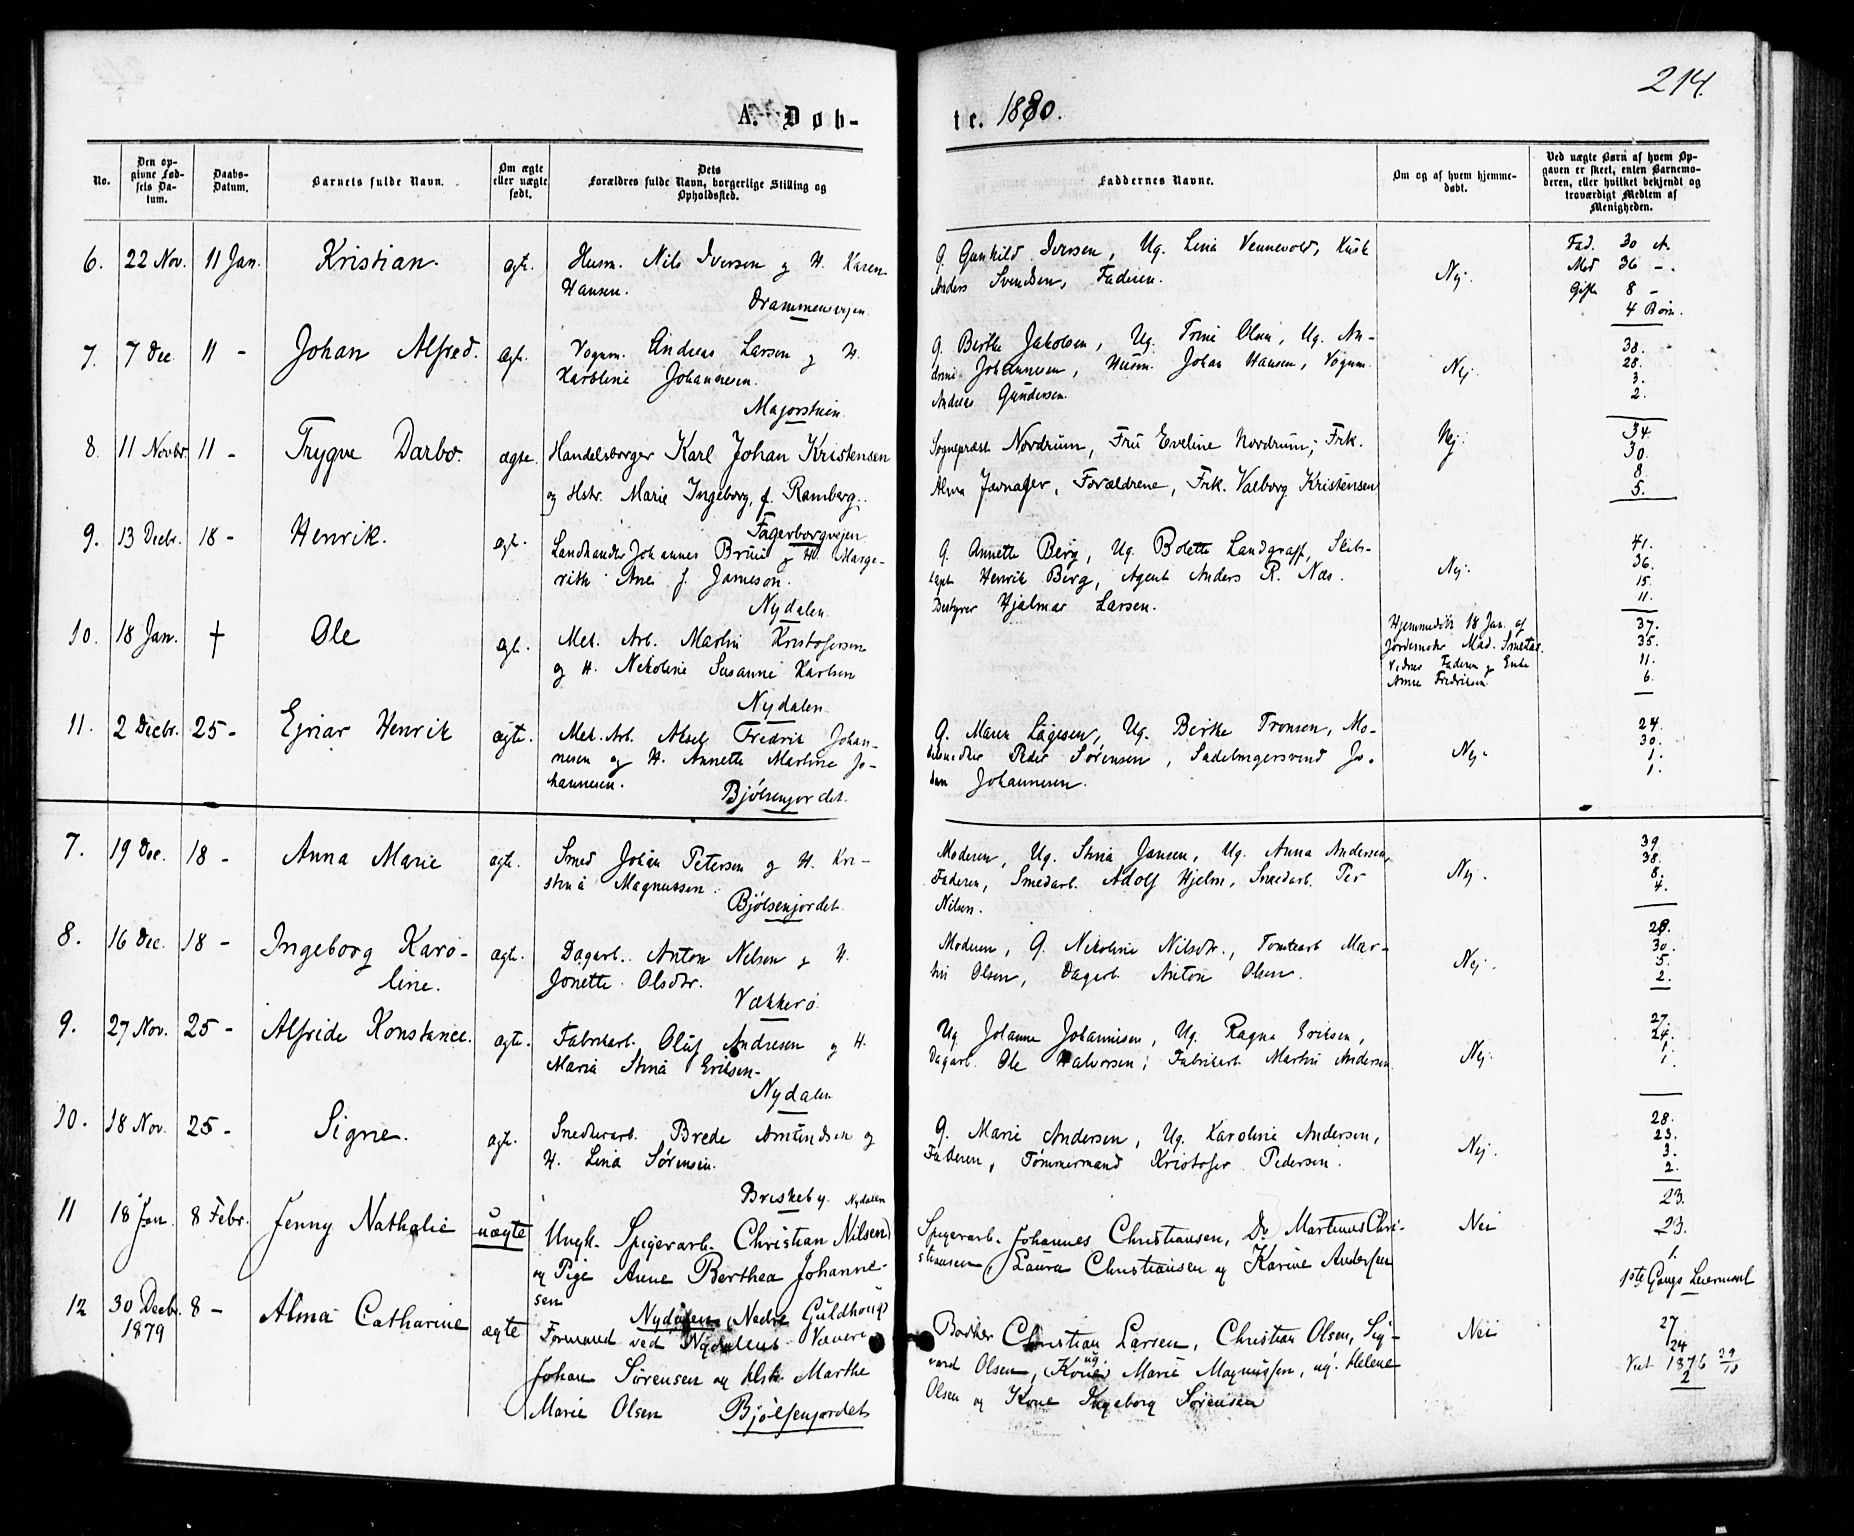 214.
A. Døb-
te. 1880.
No.
Den op-
givne Fød-
sels Da-
tum.
Daabs-
Datum.
Barnets fulde Navn.
Om ægte
eller uægte
født.
Dets
Forældres fulde Navn, borgerlige Stilling og
Opholdssted.
Faddernes Navne.
Om og af hvem hjemme-
døbt.
Ved uægte Børn af hvem Op-
gaven er skeet, enten Barnemo-
deren, eller hvilket bekjendt og
troværdigt Medlem af
Menigheden.
6. 22 Nov. 11 Jan. Kristian. ægt. Husm. Nils Iversen og H. Karen
Hansen.
Drammensvejen.
G. Gunhild Iversen, Ug. Lina Vennevold, Kusk
Anders Svendsen, Faderen.
Nej.
Fad. 30 A.
Mod 36 -.
Gifte 8 -
4 Børn.
7. 7 Dec 11 - Johan Alfred. ægt. Vognm. Andreas Larsen og H.
Karoline Johannesen.
Majorstuen.
G. Berthe Jakobsen, Ug. Trine Olsen, Ug. An-
drine Johannesen, Husm. Johan Hansen, Vognm.
Andreas Gundersen.
Nej.
38.
28.
3.
2.
8. 11 Novbr. 11 - Trygve Darbo. ægte. Handelsborger Karl Johan Kristensen
og Hstr. Marie Ingeborg, f. Ramberg.
Fagerborgvejen
Sognepræst Nordrum, Fru Eveline Nordrum, Frk.
Alma Javnager, Forældrene, Frk. Valborg Kristensen
Nej.
34.
30.
8.
5.
9. 13 Decbr. 18 - Henrik. ægt. Landhandler Johannes Bruu og H. Marge-
rith Ane f. Jameson.
Nydalen.
G. Annette Berg, Ug. Bolette Landgraff, Skibs-
kapt Henrik Berg, Agent Anders R. Næs.
Bestyrer Hjalmar Larsen.
Nej.
41.
36.
15.
11.
10. 18 Jan. † Ole ægt. Mek. Arb. Martin Kristofersen
og H. Nikoline Susanne Karlsen
Nydalen.
Hjemmedøbt 18 Jan. af
Jordemoder Mad. Smetas.
Vidner Faderen og Enke
Anne Fredriksen
37.
35.
11.
6.
11. 2 Decbr. 25 - Ejnar Henrik ægte. Mek. Arb. Aksel Fredrik Johan-
nesen og H. Annette Martine Jo-
hannesen.
Bjølsenjordet.
G. Maren Lagesen, Ug. Berthe Tronsen, Mo-
delsnedker Peder Sørensen, Sadelmagersvend Jo-
han Johannesen.
Nej.
24.
30.
1.
1.
7. 19 Dec. 18 - Anna Marie ægt. Smed Johan Petersen og H. Kri-
stina Magnussen.
Bjølsenjordet.
Moderen, Ug. Stina Jansen, Ug. Anna Andersen,
Faderen, Smedarb. Adolf Hjelm, Smedarb. Per
Nilsen.
Nej.
39
38.
8.
4.
8. 16 Dec. 18 - Ingeborg Karo-
line. ægte. Dagarb. Anton Nilsen og H.
Jonette Olsdtr.
Vækkerø
Moderen, G. Nikoline Nilsdtr., Tomtearb Mar-
tin Olsen, Dagarb. Anton Olsen.
Nej.
28.
30.
5.
2.
9. 27 Nov. 25 - Alfride Konstance. ægte. Fabrikarb. Oluf Andresen og H.
Maria Stina Eriksen.
Nydalen
Ug. Johanne Johannisen, Ug. Ragna Eriksen,
Dagarb. Ole Halvorsen, Fabrikarb. Martin Andersen
Nej.
27.
24.
1.
10. 18 Nov. 25 - Signe. ægt. Snedkerarb. Brede Amundsen og
H. Lina Sørensen.
Briskeby. Nydalen
G. Marie Andersen, Ug. Karoline Andersen,
Faderen, Tømmermand Kristofer Pedersen.
Nej.
28.
23.
3.
2.
11 18 Jan. 8 Febr. Jenny Nathalie uægte Ungk. Spigerarb. Christian Nilsen
og Pige Anne Berthea Johanne-
sen
Nydalen, Nedre Guldhoug
Spigerarb. Johannes Christiansen, Do Martinus Chri-
stiansen, Laura Christiansen og Karine Andersen
Nei
23.
23.
1.
1ste Gangs Leiermaal
12 30 Decbr.
1879 8 - Alma Catharine ægte Formand ved Nydalens Væveri
Johan Sørensen og Hstr. Marthe
Marie Olsen Bjølsenjordet
Børker Christian Larsen, Christian Olsen, Sig-
vard Olsen, ug. Marie Magnussen, ug. Helene
Olsen og Kone Ingeborg Sørensen
Nei
27
24
Viet 1876 29/10
2